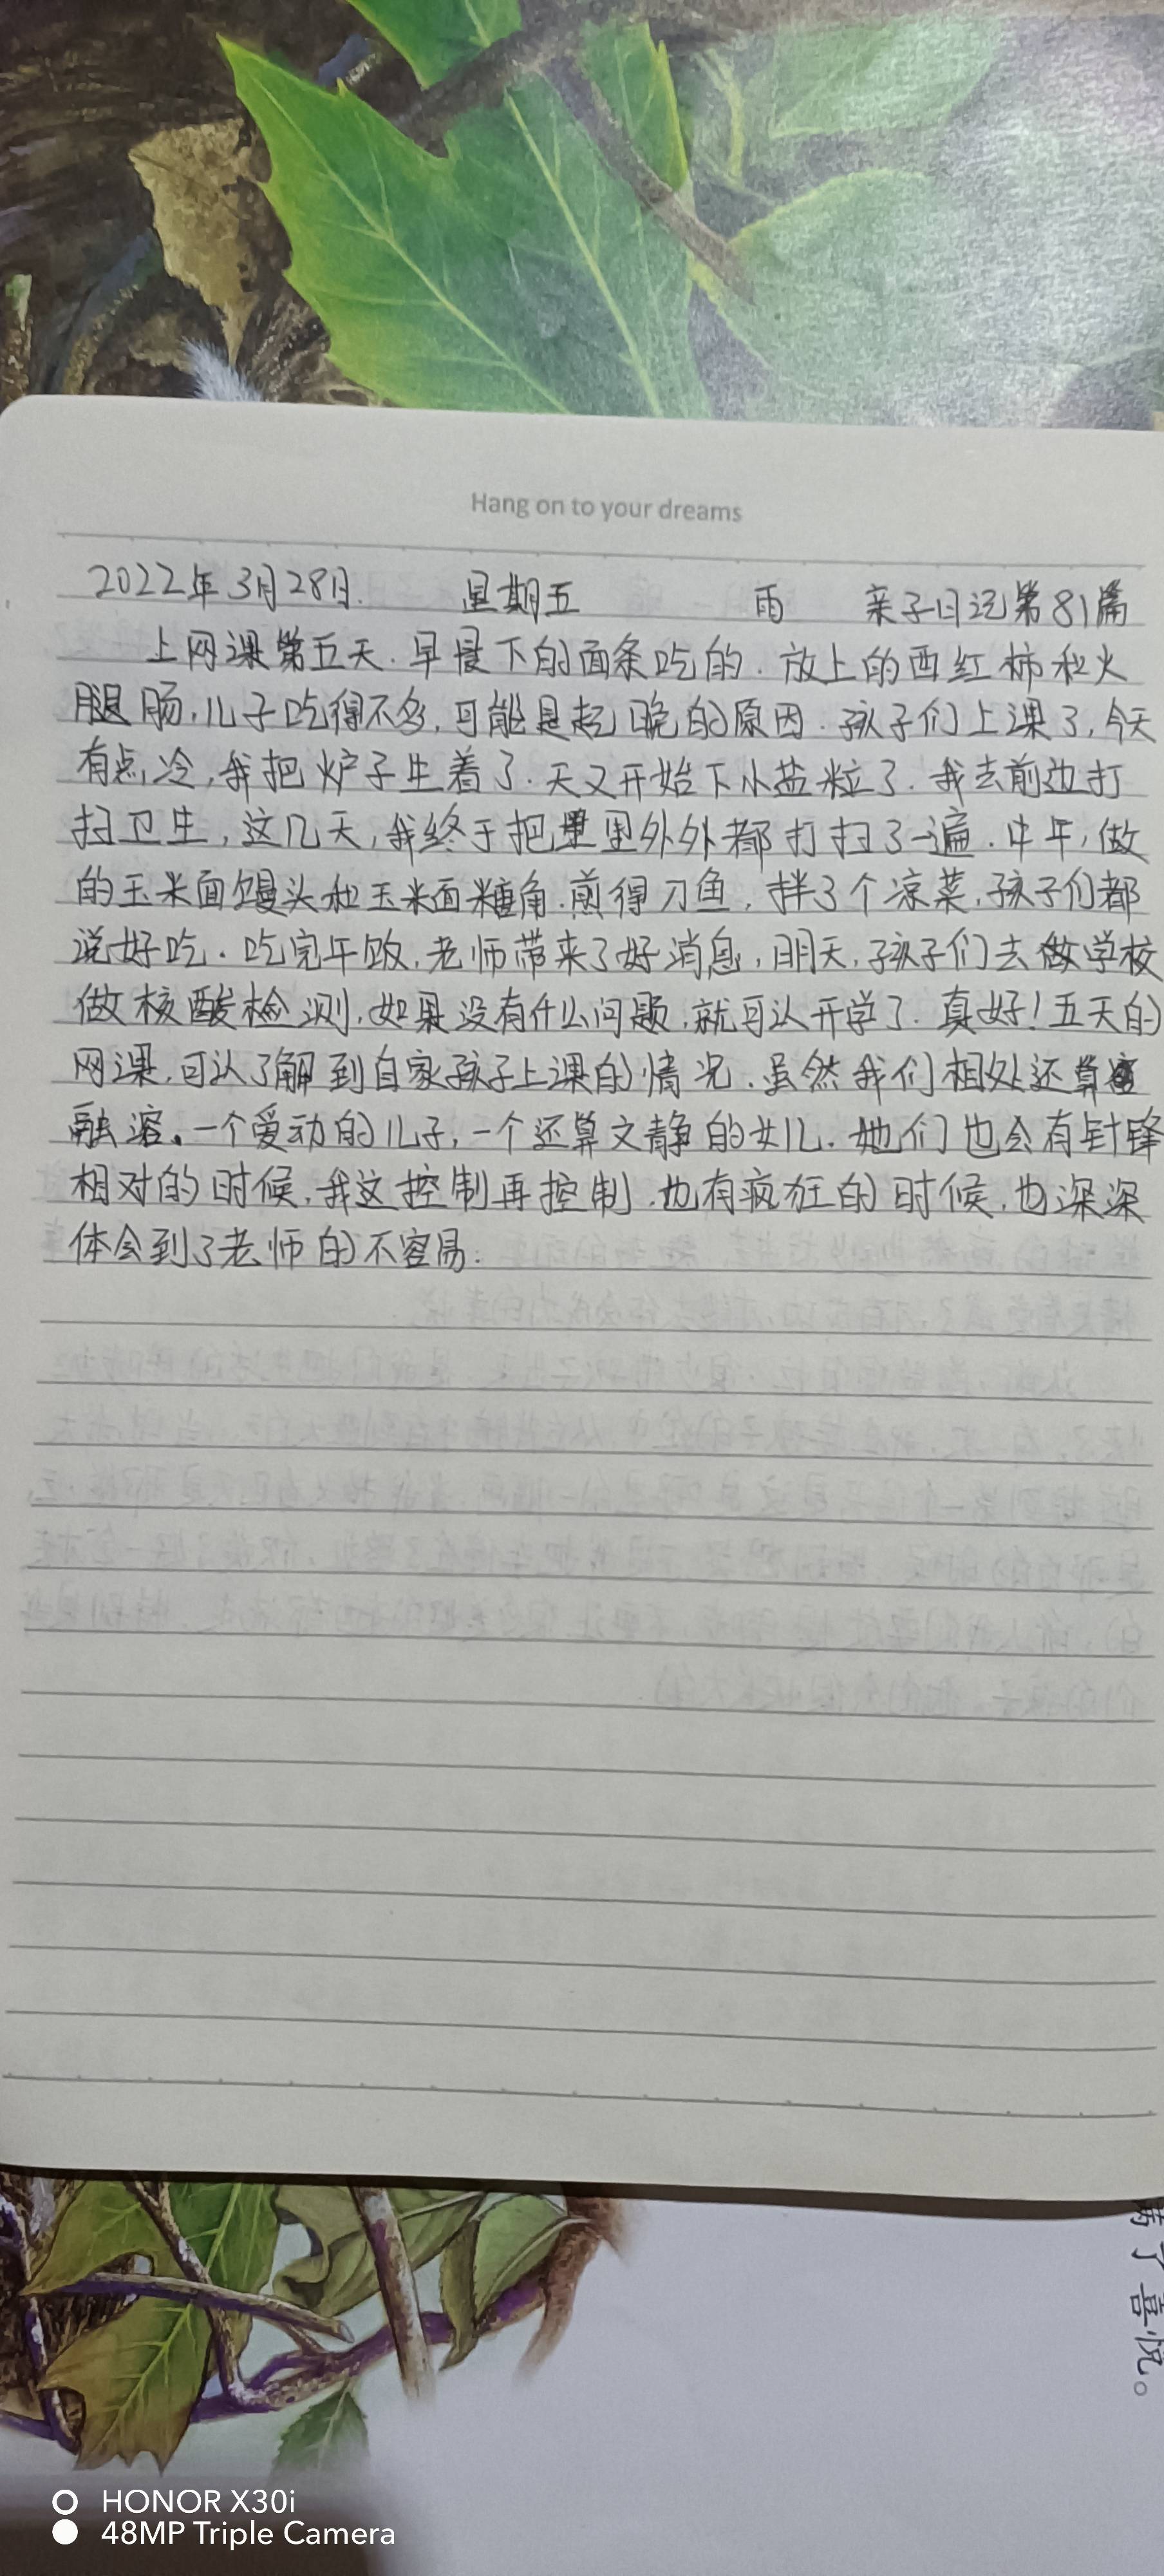 Hang on to your dreams
2022年3月28日. 星期五 雨 亲子日记第81篇
上网课第五天.早晨下的面条吃的.放上的西红柿和火
腿肠,儿子吃得不多,可能是起晚的原因.孩子们上课了,今天
有点冷,我把炉子生着了.天又开始下小盐粒了.我去前边打
扫卫生,这几天,我终于把里里外外都打扫了一遍.中午,做
的玉米面馒头和玉米面糖角.煎得刀鱼,拌了个凉菜,孩子们都
说好吃.吃完午饭,老师带来了好消息,明天,孩子们去做学校
做核酸检测,如果没有什么问题,就可认开学了.真好!五天的
网课,可认了解到自家孩子上课的情况.虽然我们相处还算
融溶。一个爱动的儿子,一个还算文静的女儿.她们也会有针锋
相对的时候,我这控制再控制.也有疯狂的时候,也深深
体会到了老师的不容易.
了喜悦。
HONOR X30i
48MP Triple Camera